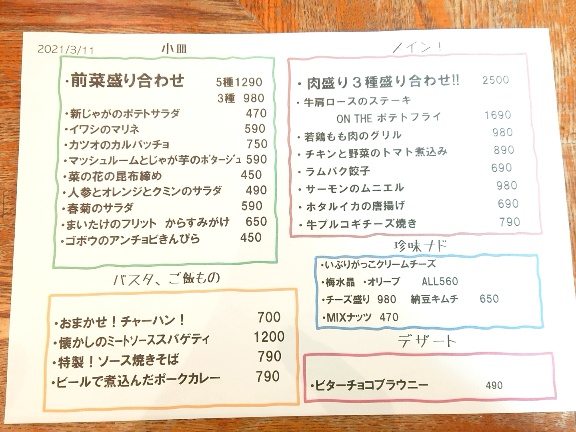 2021/3/11
小皿
・前菜盛り合わせ 5種1290
3種 980
・新じゃがのポテトサラダ 470
・イワシのマリネ 590
・カツオのカルパッチョ 750
・マッシュルームとじゃが芋のポタージュ 590
・菜の花の昆布締め 450
・人参とオレンジとクミンのサラダ 490
・春菊のサラダ 590
・まいたけのフリット からすみがけ 650
・ゴボウのアンチョビきんぴら 450
パスタ、ご飯もの
・おまかせ！チャーハン！ 700
・懐かしのミートソーススパゲティ 1200
・特製！ソース焼きそば 790
・ビールで煮込んだポークカレー 790
メイン！
・肉盛り３種盛り合わせ!! 2500
・牛肩ロースのステーキ
ON THE ポテトフライ 1690
・若鶏もも肉のグリル 980
・チキンと野菜のトマト煮込み 890
・ラムパク餃子 690
・サーモンのムニエル 980
・ホタルイカの唐揚げ 690
・牛プルコギチーズ焼き 790
珍味ナド
・いぶりがっこクリームチーズ
・梅水晶 ・オリーブ ALL560
・チーズ盛り 980 納豆キムチ 650
・MIXナッツ 470
デザート
・ビターチョコブラウニー 490